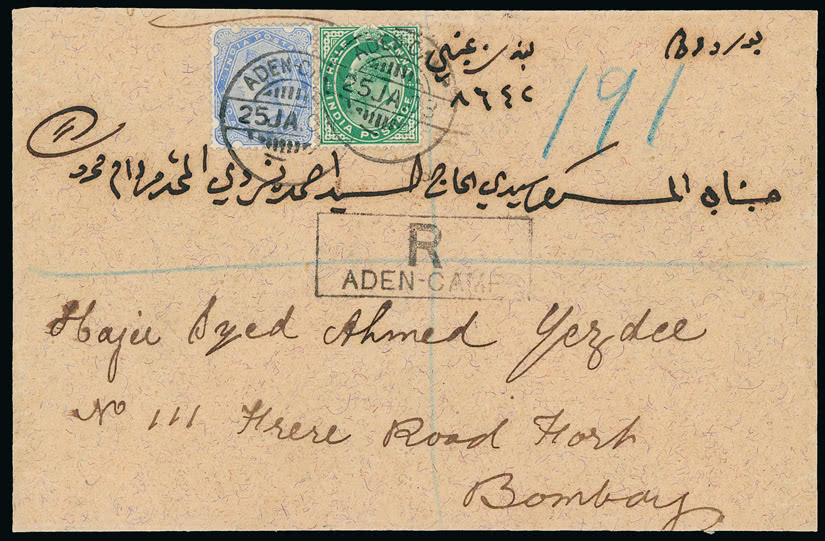 INDIA POSTAGE
HALF ANNA
INDIA POSTAGE
ADEN-C
25 JA.
ADEN
25 JA
بندر
٨٦٤٢
191
11
جناب المكرم سيدي الحاج السيد احمد يزدي المحترم دام
R
ADEN-CAMP
Hajee Syed Ahmed Yezdee
No 111 Frere Road Fort
Bombay